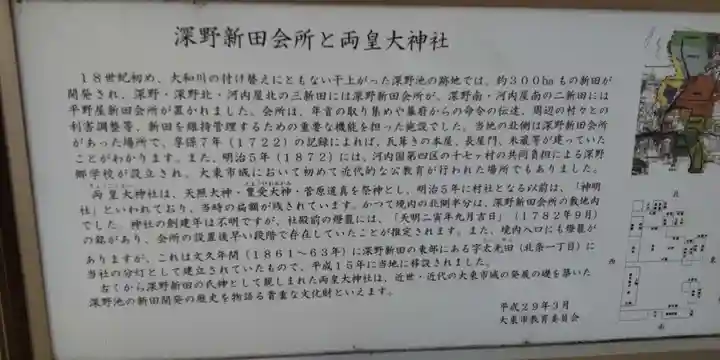 深野新田会所と両皇大神社
18世紀初め、大和川の付け替えにともない干上がった深野池の跡地では、約300haもの新田が
開発され、深野・深野北・河内屋北の三新田には深野新田会所が、深野南・河内屋南の二新田には
平野屋新田会所が置かれました。会所は、年貢の取り集めや幕府からの命令の伝達、周辺の村々との
利害調整等、新田を維持管理するための重要な機能を担った施設でした。当地の北側は深野新田会所
があった場所で、享保7年(1722)の記録によれば、瓦葺きの本屋、長屋門、米蔵等が建っていた
ことがわかります。また、明治5年(1872)には、河内国第四区の十七ヶ村の共同負担による深野
郷学校が設立され、大東市域において初めて近代的な公教育が行われた場所でもありました。
両皇大神社は、天照大神・豊受大神・菅原道真を祭神とし、明治5年に村社となる以前は、「神明
社」といわれており、当時の扁額が残されています。かつて境内の北側半分は、深野新田会所の敷地内
でした。神社の創建年は不明ですが、社殿前の燈籠には、「天明二寅年九月吉日」(1782年9月)
の銘があり、会所の設置後早い段階で存在していたことが推定されます。また、境内入口にも燈籠が
ありますが、これは文久年間(1861~63年)に深野新田の東部にある字太光田(北条一丁目)に
当社の分灯として建立されていたもので、平成15年に当地に移設されました。
古くから深野新田の氏神として親しまれた両皇大神社は、近世・近代の大東市域の発展の礎を築いた
深野池の新田開発の歴史を物語る貴重な文化財といえます。
平成29年3月
大東市教育委員会
北
西
南